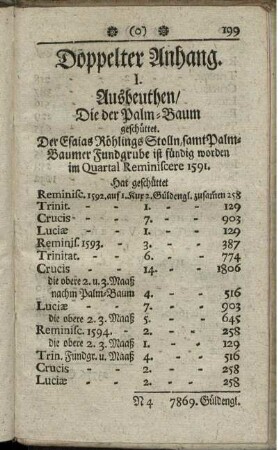 ❀ (o) ❀ 199
Doppelter Anhang.
I.
Ausbeuthen/
Die der Palm-Baum
geschüttet.
Der Esaias Röhlings Stolln, samt Palm-
Baumer Fundgrube ist fündig worden
im Quartal Reminiscere 1591.
Hat geschüttet
Reminisc. 1592. auf 1. Kux 2. Güldengl. zusamen 258
Trinit. - - 1. - - 129
Crucis - - 7. - - 903
Luciæ - - 1. - - 129
Reminis. 1593. - 3. - - 387
Trinitat. - - 6. - - 774
Crucis - - 14. - - 1806
die obere 2. u. 3. Maaß
nach m Palm-Baum 4. - - 516
Luciæ - - 7. - - 903
die obere 2. 3. Maaß 5. - - 645
Reminisc. 1594. - 2. - - 258
die obere 2. 3. Maaß 1. - - 129
Trin. Fundgr. u. Maaß 4. - - 516
Crucis - - 2. - - 258
Luciæ - - 2. - - 258
N 4 7869. Güldengl.